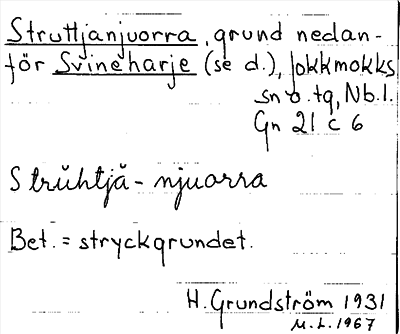 Struttjanjuorra, grund nedan-
för Svineharje (se d.), Jokkmokks
sn o. tg, Nb. l.
Gn 21 c 6
Strŭhtjă-njuorra
Bet. = stryckgrundet.
H. Grundström 1931
M. L. 1967